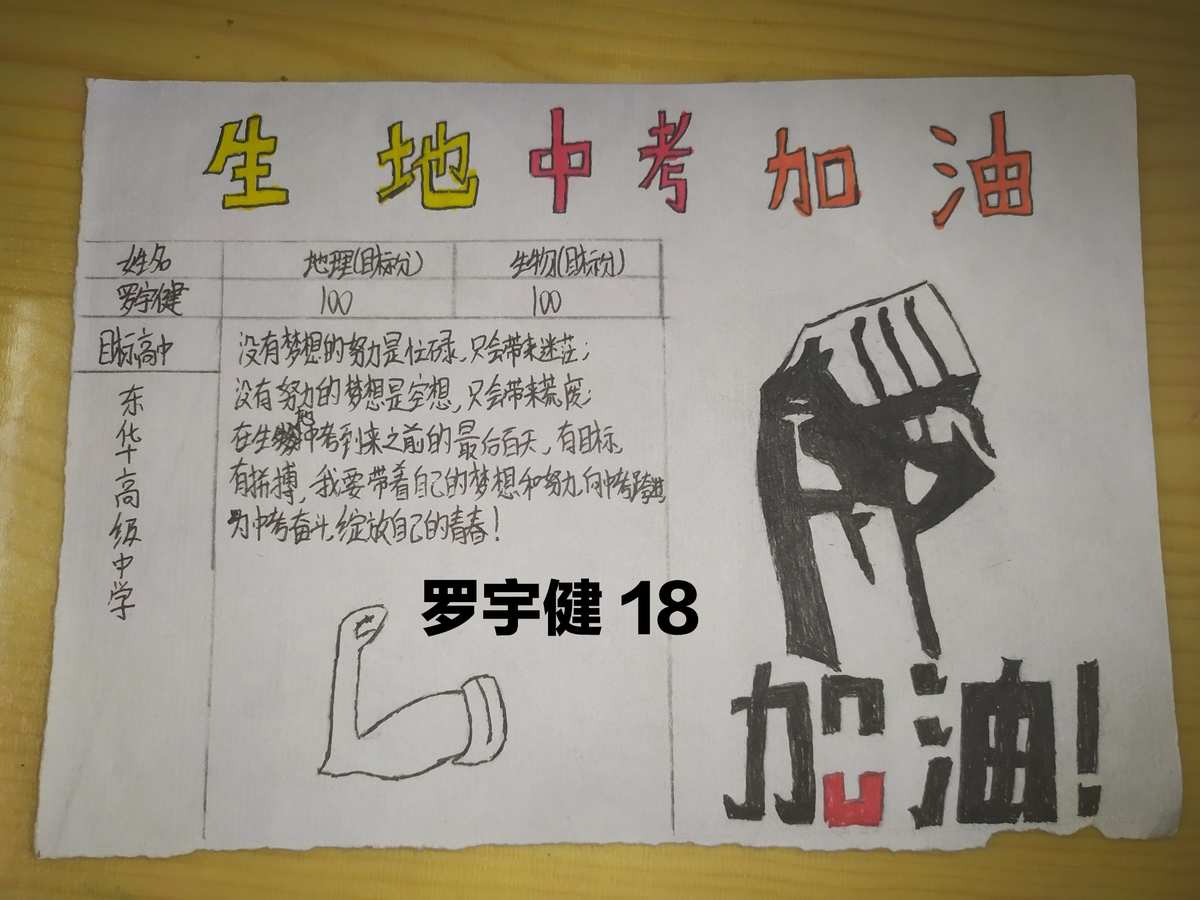 生地中考加油
姓名 地理(目标分) 生物(目标分)
罗宇健 100 100
目标高中
东华高级中学
没有梦想的努力是忙碌,只会带来迷茫;
没有努力的梦想是空想,只会带来荒废;
在生地中考到来之前的最后百天,有目标,
有拼搏,我要带着自己的梦想和努力,向中考跨进
为中考奋斗,绽放自己的青春!
罗宇健 18
加油!